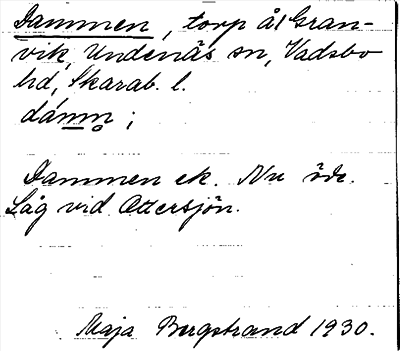 Dammen, torp å1 Gran-
vik, Undenäs sn, Vadsbo
hd, Skarab. l.
dám̲m̲̥ ;
Dammen ek. Nu öde.
Låg vid Ottersjön.
Maja Bergstrand 1930.